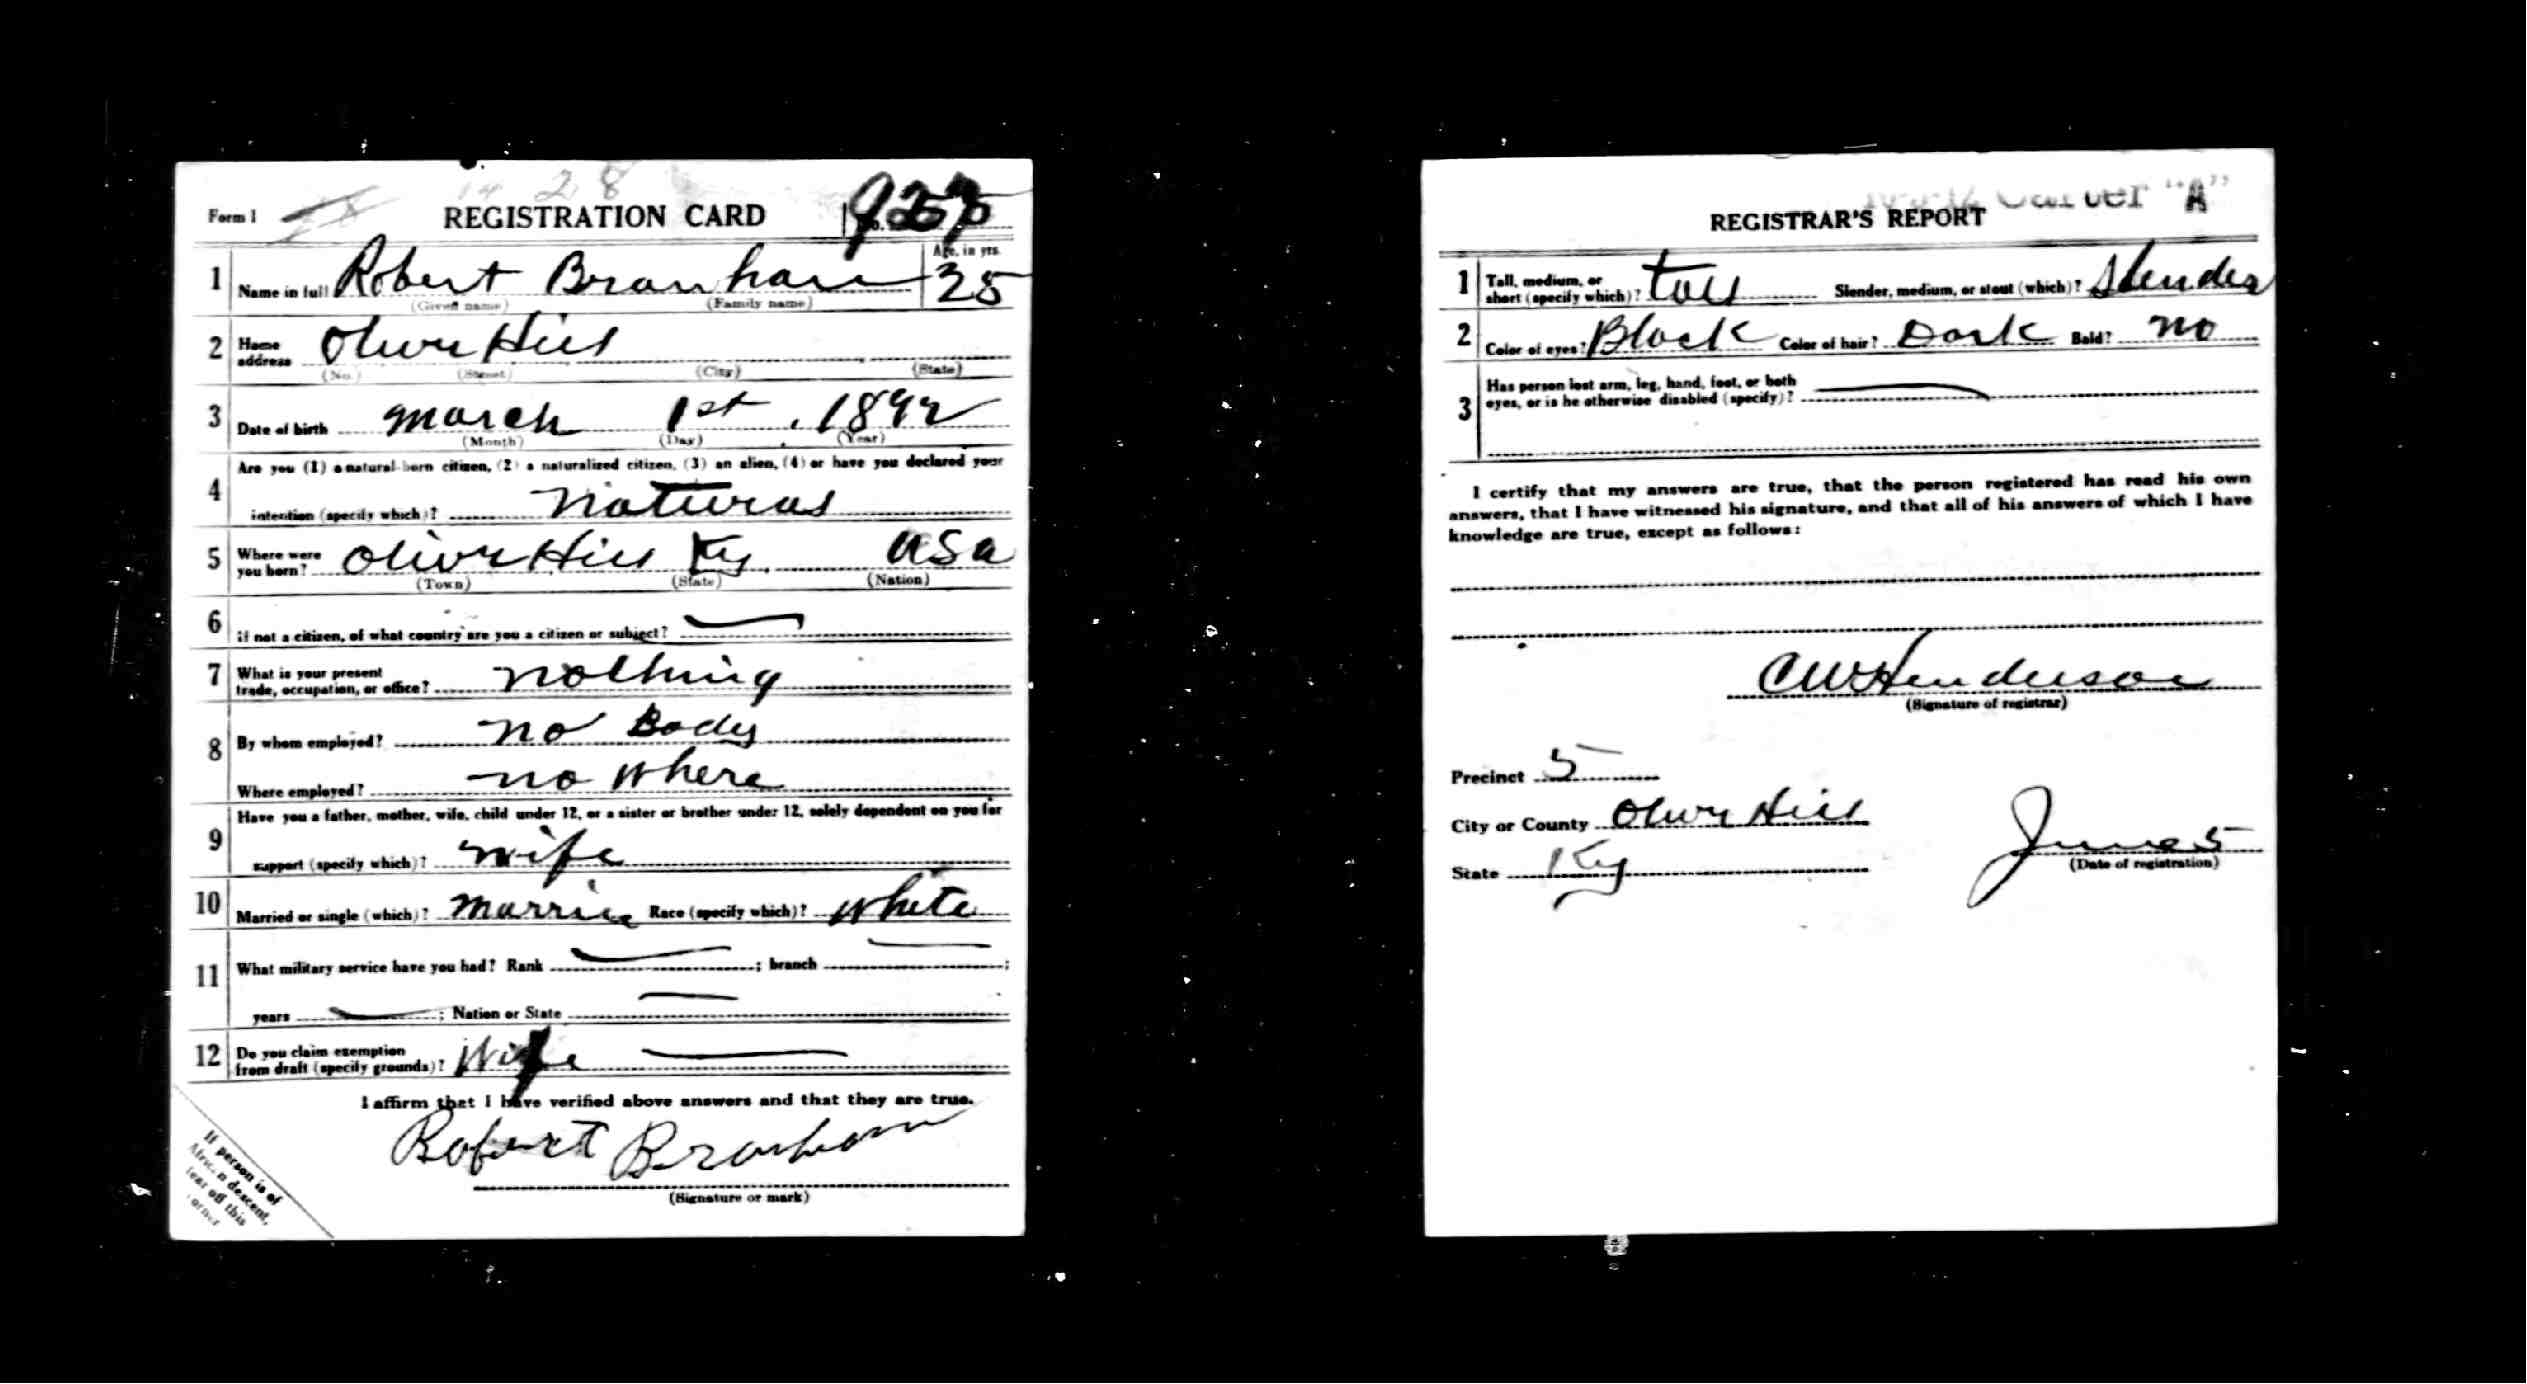 Form 1
28
REGISTRATION CARD
1 Name in full Robert Branham Age, in yrs. 25
(Given name) (Family name)
2 Home address Olive Hill
(No.) (Street) (City) (State)
3 Date of birth March 1st, 1892
(Month) (Day) (Year)
4 Are you (1) a natural-born citizen, (2) a naturalized citizen, (3) an alien, (4) or have you declared your
intention (specify which)? natural
5 Where were you born? Olive Hill Ky. USA
(Town) (State) (Nation)
6 If not a citizen, of what country are you a citizen or subject?
7 What is your present
trade, occupation, or office? nothing
8 By whom employed? no Body
Where employed? no where
9 Have you a father, mother, wife, child under 12, or a sister or brother under 12, solely dependent on you for
support (specify which)? wife
10 Married or single (which)? Married Race (specify which)? white
11 What military service have you had? Rank ; branch ;
years ; Nation or State
12 Do you claim exemption
from draft (specify grounds)? Wife
I affirm that I have verified above answers and that they are true.
Robert Branham
(Signature or mark)
If person is of
African descent,
tear off this
corner
"A"
REGISTRAR'S REPORT
1 Tall, medium, or
short (specify which)? tall Slender, medium, or stout (which)? Slender
2 Color of eyes? Black Color of hair? Dark Bald? no
3 Has person lost arm, leg, hand, foot, or both
eyes, or is he otherwise disabled (specify)?
I certify that my answers are true, that the person registered has read his own
answers, that I have witnessed his signature, and that all of his answers of which I have
knowledge are true, except as follows:
CW Henderson
(Signature of registrar)
Precinct 5
City or County Olive Hill
State Ky
June 5
(Date of registration)